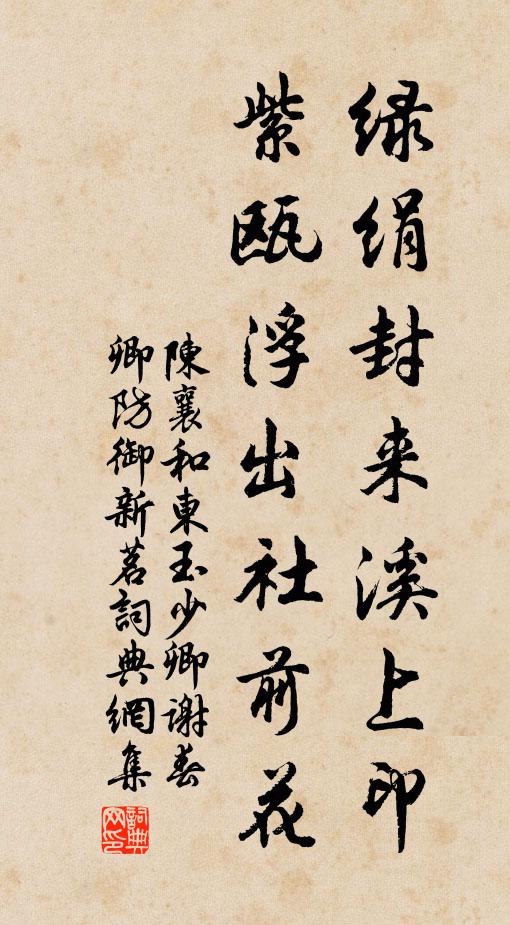 绿绢封来溪上印
紫瓯浮出社前花
陳襄和東玉少卿謝春
卿防御新茗詞典網集
詞典网印